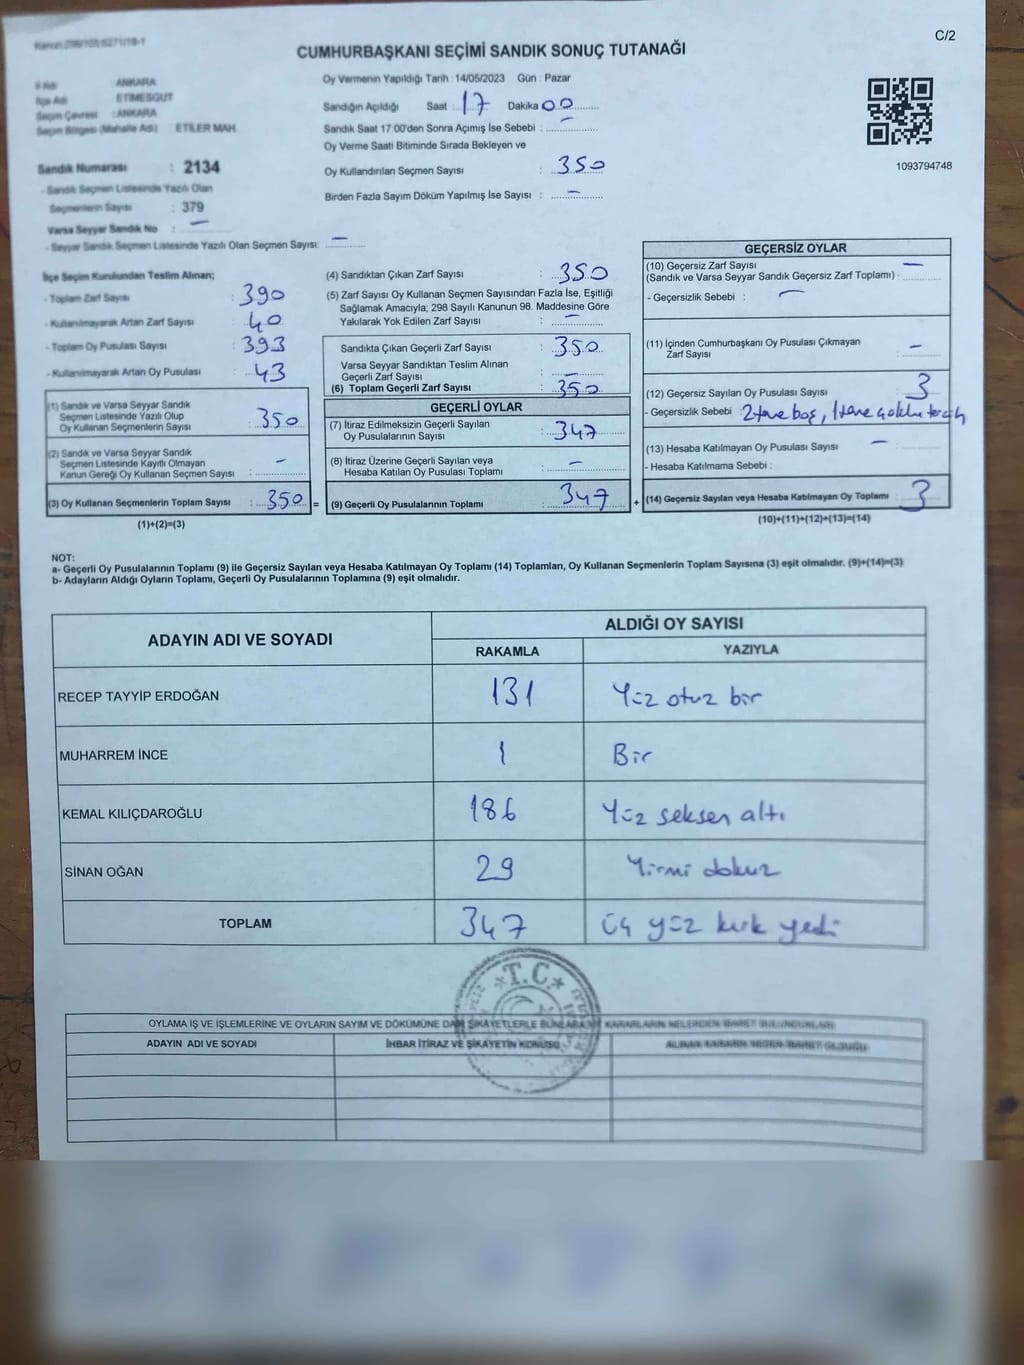 Kanun:298/103;6271/18-1
C/2
CUMHURBAŞKANI SEÇİMİ SANDIK SONUÇ TUTANAĞI
İl Adı : ANKARA
İlçe Adı : ETİMESGUT
Seçim Çevresi : ANKARA
Seçim Bölgesi (Mahalle Adı) : ETİLER MAH.
Sandık Numarası : 2134
- Sandık Seçmen Listesinde Yazılı Olan
Seçmenlerin Sayısı : 379
Varsa Seyyar Sandık No : —
- Seyyar Sandık Seçmen Listesinde Yazılı Olan Seçmen Sayısı: —
Oy Vermenin Yapıldığı Tarih : 14/05/2023 Gün : Pazar
Sandığın Açıldığı Saat : 17 Dakika 00
Sandık Saat 17:00'den Sonra Açımış İse Sebebi : —
Oy Verme Saati Bitiminde Sırada Bekleyen ve
Oy Kullandırılan Seçmen Sayısı : 350
Birden Fazla Sayım Döküm Yapılmış İse Sayısı : —
1093794748
İlçe Seçim Kurulundan Teslim Alınan;
- Toplam Zarf Sayısı : 390
- Kullanılmayarak Artan Zarf Sayısı : 40
- Toplam Oy Pusulası Sayısı : 393
- Kullanılmayarak Artan Oy Pusulası : 43
(1) Sandık ve Varsa Seyyar Sandık
Seçmen Listesinde Yazılı Olup
Oy Kullanan Seçmenlerin Sayısı : 350
(2) Sandık ve Varsa Seyyar Sandık
Seçmen Listesinde Kayıtlı Olmayan
Kanun Gereği Oy Kullanan Seçmen Sayısı : —
(3) Oy Kullanan Seçmenlerin Toplam Sayısı : 350 =
(1)+(2)=(3)
(4) Sandıktan Çıkan Zarf Sayısı : 350
(5) Zarf Sayısı Oy Kullanan Seçmen Sayısından Fazla İse, Eşitliği
Sağlamak Amacıyla; 298 Sayılı Kanunun 98. Maddesine Göre
Yakılarak Yok Edilen Zarf Sayısı : —
Sandıkta Çıkan Geçerli Zarf Sayısı : 350
Varsa Seyyar Sandıktan Teslim Alınan
Geçerli Zarf Sayısı : —
(6) Toplam Geçerli Zarf Sayısı : 350
GEÇERLİ OYLAR
(7) İtiraz Edilmeksizin Geçerli Sayılan
Oy Pusulalarının Sayısı : 347
(8) İtiraz Üzerine Geçerli Sayılan veya
Hesaba Katılan Oy Pusulası Toplamı : —
(9) Geçerli Oy Pusulalarının Toplamı : 347 +
GEÇERSİZ OYLAR
(10) Geçersiz Zarf Sayısı —
(Sandık ve Varsa Seyyar Sandık Geçersiz Zarf Toplamı) :
- Geçersizlik Sebebi : —
(11) İçinden Cumhurbaşkanı Oy Pusulası Çıkmayan
Zarf Sayısı : —
(12) Geçersiz Sayılan Oy Pusulası Sayısı : 3
- Geçersizlik Sebebi : 2 tane boş, 1 tane çoklu tercih
(13) Hesaba Katılmayan Oy Pusulası Sayısı : —
- Hesaba Katılmama Sebebi :
(14) Geçersiz Sayılan veya Hesaba Katılmayan Oy Toplamı : 3
(10)+(11)+(12)+(13)=(14)
NOT:
a- Geçerli Oy Pusulalarının Toplamı (9) ile Geçersiz Sayılan veya Hesaba Katılmayan Oy Toplamı (14) Toplamları, Oy Kullanan Seçmenlerin Toplam Sayısına (3) eşit olmalıdır. (9)+(14)=(3)
b- Adayların Aldığı Oyların Toplamı, Geçerli Oy Pusulalarının Toplamına (9) eşit olmalıdır.
ADAYIN ADI VE SOYADI
ALDIĞI OY SAYISI
RAKAMLA YAZIYLA
RECEP TAYYİP ERDOĞAN 131 Yüz otuz bir
MUHARREM İNCE 1 Bir
KEMAL KILIÇDAROĞLU 186 Yüz seksen altı
SİNAN OĞAN 29 Yirmi dokuz
TOPLAM 347 üç yüz kırk yedi
T.C.
OYLAMA İŞ VE İŞLEMLERİNE VE OYLARIN SAYIM VE DÖKÜMÜNE DAİR ŞİKAYETLERLE BUNLARA
ADAYIN ADI VE SOYADI İHBAR İTİRAZ VE ŞİKAYETİN KONUSU